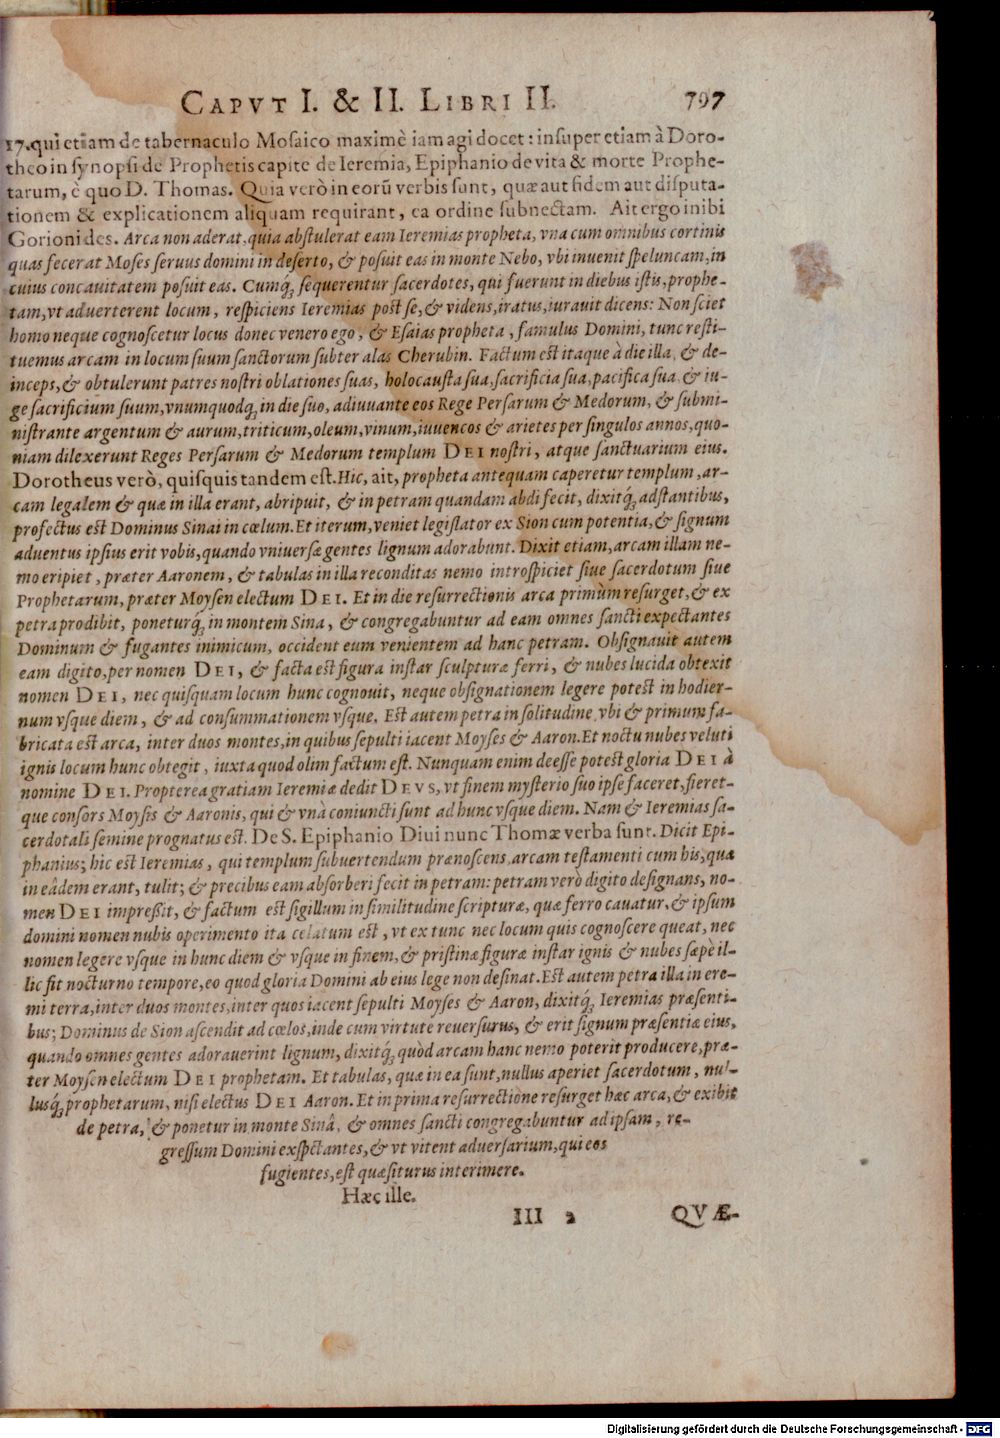 CAPVT I. & II. LIBRI II. 797
17. qui etiam de tabernaculo Mosaico maximè iam agi docet: insuper etiam à Doro-
theo in synopsi de Prophetis capite de Ieremia, Epiphanio de vita & morte Prophe-
tarum, è quo D. Thomas. Quia verò in eorũ verbis sunt, quæ aut fidem aut disputa-
tionem & explicationem aliquam requirant, ea ordine subnectam. Ait ergo inibi
Gorionides. Arca non aderat, quia abstulerat eam Ieremias propheta, vna cum omnibus cortinis
quas fecerat Moses seruus domini in deserto, & posuit eas in monte Nebo, vbi inuenit speluncam, in
cuius concauitatem posuit eas. Cumq́; sequerentur sacerdotes, qui fuerunt in diebus istis, prophe-
tam, vt aduerterent locum, respiciens Ieremias post se, & videns, iratus, iurauit dicens: Non sciet
homo neque cognoscetur locus donec venero ego, & Esaias propheta, famulus Domini, tunc resti-
tuemus arcam in locum suum sanctorum subter alas Cherubin. Factum est itaque à die illa, & de-
inceps, & obtulerunt patres nostri oblationes suas, holocausta sua, sacrificia sua, pacifica sua & iu-
ge sacrificium suum, vnumquodq; in die suo, adiuuante eos Rege Persarum & Medorum, & submi-
nistrante argentum & aurum, triticum, oleum, vinum, iuuencos & arietes per singulos annos, quo-
niam dilexerunt Reges Persarum & Medorum templum DEI nostri, atque sanctuarium eius.
Dorotheus verò, quisquis tandem est. Hic, ait, propheta antequam caperetur templum, ar-
cam legalem & quæ in illa erant, abripuit, & in petram quandam abdi fecit, dixitq́; adstantibus,
profectus est Dominus Sinai in cœlum. Et iterum, veniet legislator ex Sion cum potentia, & signum
aduentus ipsius erit vobis, quando vniuersæ gentes lignum adorabunt. Dixit etiam, arcam illam ne-
mo eripiet, præter Aaronem, & tabulas in illa reconditas nemo introspiciet siue sacerdotum siue
Prophetarum, præter Moysen electum DEI. Et in die resurrectionis arca primùm resurget, & ex
petra prodibit, poneturq́; in montem Sina, & congregabuntur ad eam omnes sancti expectantes
Dominum & fugantes inimicum, occident eum venientem ad hanc petram. Obsignauit autem
eam digito, per nomen DEI, & facta est figura instar sculpturæ ferri, & nubes lucida obtexit
nomen DEI, nec quisquam locum hunc cognouit, neque obsignationem legere potest in hodier-
num vsque diem, & ad consummationem vsque. Est autem petra in solitudine vbi & primum fa-
bricata est arca, inter duos montes, in quibus sepulti iacent Moyses & Aaron. Et noctu nubes veluti
ignis locum hunc obtegit, iuxta quod olim factum est. Nunquam enim deesse potest gloria DEI à
nomine DEI. Propterea gratiam Ieremiæ dedit DEVS, vt finem mysterio suo ipse faceret, fieret-
que consors Moysis & Aaronis, qui & vnà coniuncti sunt ad hunc vsque diem. Nam & Ieremias sa-
cerdotali semine prognatus est. De S. Epiphanio Diui nunc Thomæ verba sunt. Dicit Epi-
phanius; hic est Ieremias, qui templum subuertendum prænoscens, arcam testamenti cum his, quæ
in eâdem erant, tulit; & precibus eam absorberi fecit in petram: petram verò digito designans, no-
men DEI impreßit, & factum est sigillum in similitudine scripturæ, quæ ferro cauatur, & ipsum
domini nomen nubis operimento ita celatum est, vt ex tunc nec locum quis cognoscere queat, nec
nomen legere vsque in hunc diem & vsque in finem, & pristinæ figuræ instar ignis & nubes sæpè il-
lic fit nocturno tempore, eo quod gloria Domini ab eius lege non desinat. Est autem petra illa in ere-
mi terra, inter duos montes, inter quos iacent sepulti Moyses & Aaron, dixitq́; Ieremias præsenti-
bus; Dominus de Sion ascendit ad cœlos, inde cum virtute reuersurus, & erit signum præsentiæ eius,
quando omnes gentes adorauerint lignum, dixitq́; quòd arcam hanc nemo poterit producere, præ-
ter Moysen electum DEI prophetam. Et tabulas, quæ in ea sunt, nullus aperiet sacerdotum, nul-
lusq́; prophetarum, nisi electus DEI Aaron. Et in prima resurrectione resurget hæc arca, & exibit
de petra, & ponetur in monte Sinâ, & omnes sancti congregabuntur ad ipsam, re-
gressum Domini exspectantes, & vt vitent aduersarium, qui eos
fugientes, est quæsiturus interimere.
Hæc ille.
III 2 QVÆ-
Digitalisierung gefördert durch die Deutsche Forschungsgemeinschaft - DFG